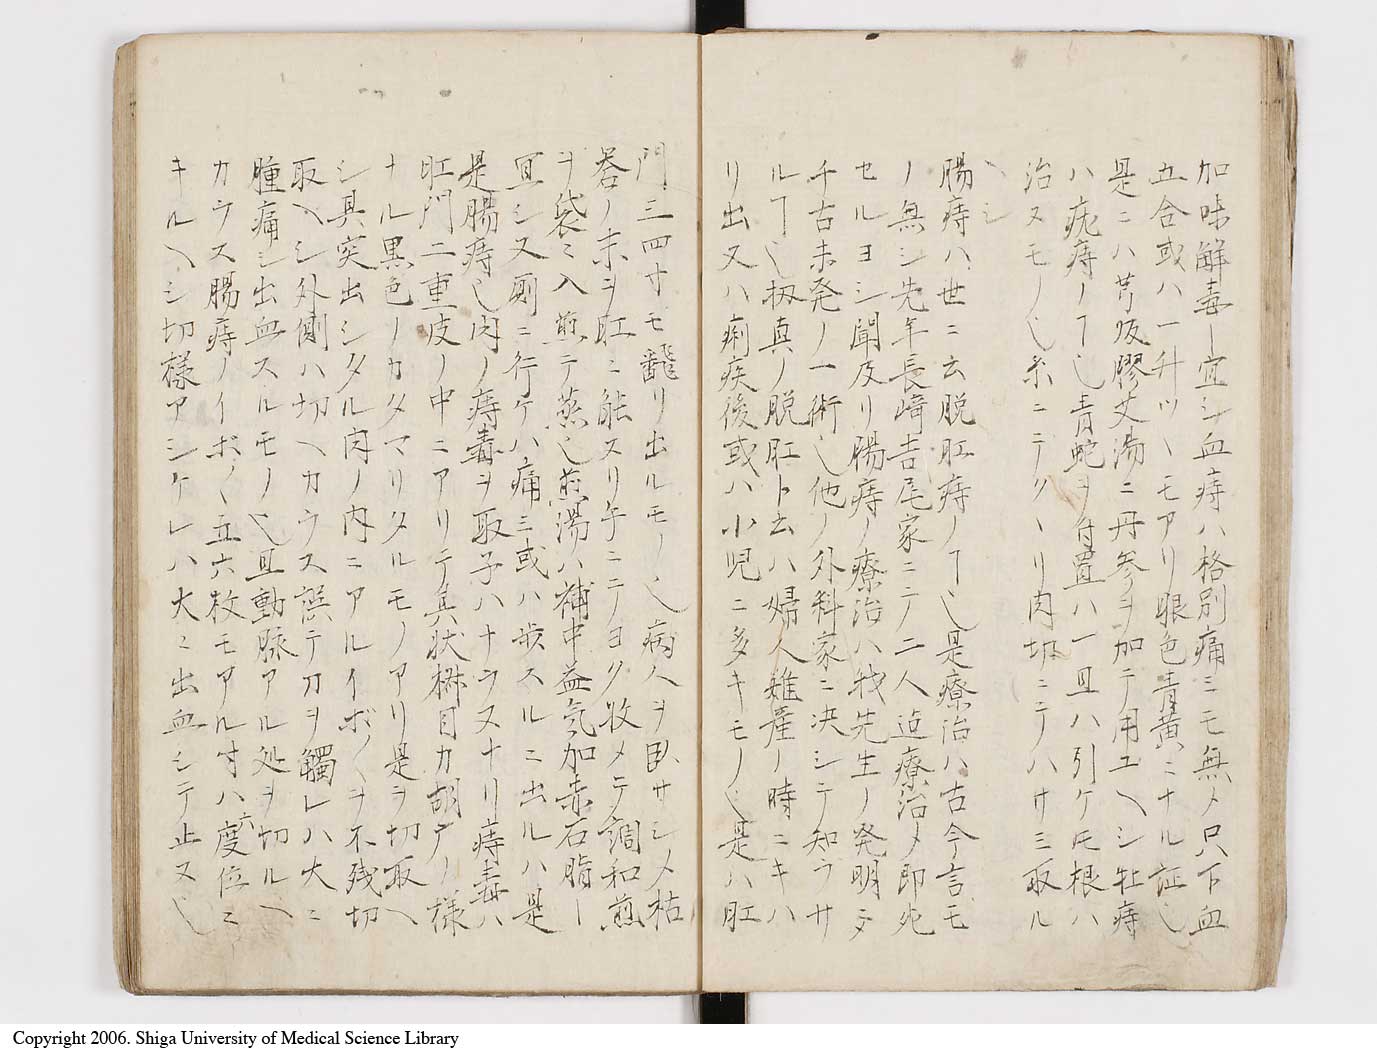 加味解毒ー宜シ血痔ハ格別痛ミモ無〆只下血
五合或ハ一升ツヽモアリ眼色青黄ニナル証也
是ニハ芎皈膠艾湯ニ丹参ヲ加テ用ユヘシ牡痔
ハ疣痔ノヿ也青蛇ヲ付置ハ一旦ハ引ケ𪜈根ハ
治ヌモノ也糸ニテクヽリ肉切ニテハサミ取ル
ヘシ
腸痔ハ世ニ云脱肛痔ノヿ也是療治ハ古今言モ
ノ無シ先年長﨑吉尾家ニテ二人迠療治〆即死
セルヨシ聞及リ腸痔ノ療治ハ我先生ノ発明ニテ
千古未発ノ一術也他ノ外科家ニ决シテ知ラサ
ルヿ也扨真ノ脱肛ト云ハ婦人難産ノ時ニキハ
リ出又ハ痢疾後或ハ小児ニ多キモノ也是ハ肛
門三四寸モ翻リ出ルモノ也病人ヲ臥サシメ枯
礬ノ末ヲ肛ニ能ヌリ手ニテヨク收メテ調和煎
ヲ袋ニ入煎テ蒸也煎湯ハ補中益気加赤石脂ー
宜シ又厠ニ行ケハ痛ミ或ハ歩スルニ出ルハ是
是腸痔也肉ノ痔毒ヲ取子ハナラヌナリ痔毒ハ
肛門二重皮ノ中ニアリテ其状桝目カ胡テノ様
ナル黒色ノカタマリタルモノアリ是ヲ切取ヘ
シ其突出シタル肉ノ内ニアルイボ〳〵ヲ不残切
取ヘシ外側ハ切ヘカラス誤テ刀ヲ觸レハ大ニ
腫痛シ出血スルモノ也且動脉アル処ヲ切ルヘ
カラス腸痔ノイボ〳〵五六枚モアル寸ハ六度位ニ
キルヘシ切様アシケレハ大ニ出血シテ止ヌ也
Copyright 2006. Shiga University of Medical Science Library